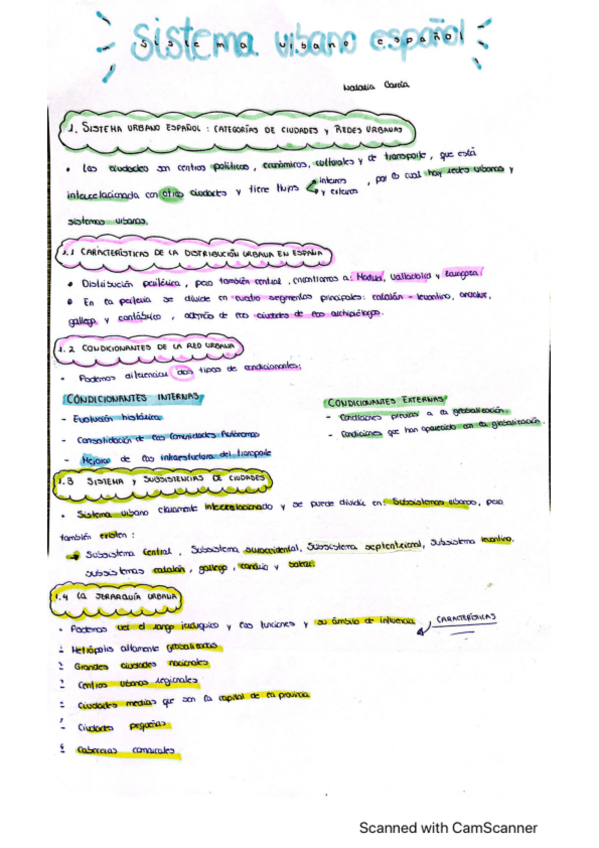 Sistema urbano español
Sistema urbano español
Natalia García
1. SISTEMA URBANO ESPAÑOL: CATEGORÍAS DE CIUDADES Y REDES URBANAS
• Las ciudades son centros políticos, económicos, culturales y de transporte, que está
interrelacionada con otras ciudades y tiene flujos internos y externos, por lo cual hay redes urbanas y
sistemas urbanos.
1.1 CARACTERÍSTICAS DE LA DISTRIBUCIÓN URBANA EN ESPAÑA
• Distribución periférica, pero también central, encontramos a: Madrid, Valladolid y Zaragoza
• En la periferia se divide en cuatro segmentos principales: catalán - levantino, andaluz,
gallego y cantábrico, además de las ciudades de los archipiélagos.
1.2 CONDICIONANTES DE LA RED URBANA
• Podemos diferenciar dos tipos de condicionantes:
CONDICIONANTES INTERNAS
- Evolución histórica
- Consolidación de las Comunidades Autónomas
- Mejoras de las infraestructura del transporte
CONDICIONANTES EXTERNAS
- Condiciones previas a la globalización.
- Condiciones que han aparecido con la globalización.
1.3 SISTEMA Y SUBSISTENCIAS DE CIUDADES
• Sistema urbano claramente interrelacionado y se puede dividir en: Subsistemas urbanos, pero
también existen:
→ Subsistema Central, Subsistema suroccidental, Subsistema septentrional, Subsistema levantino,
subsistemas catalán, gallego, canario y balear.
1.4 LA JERARQUÍA URBANA
• Podemos ver el rango jerárquico y las funciones y su ámbito de influencia
CARACTERÍSTICAS
Metrópolis altamente globalizadas
Grandes ciudades nacionales
Centros urbanos regionales
Ciudades medias que son la capital de la provincia
Ciudades pequeñas
Cabeceras comarcales
Scanned with CamScanner